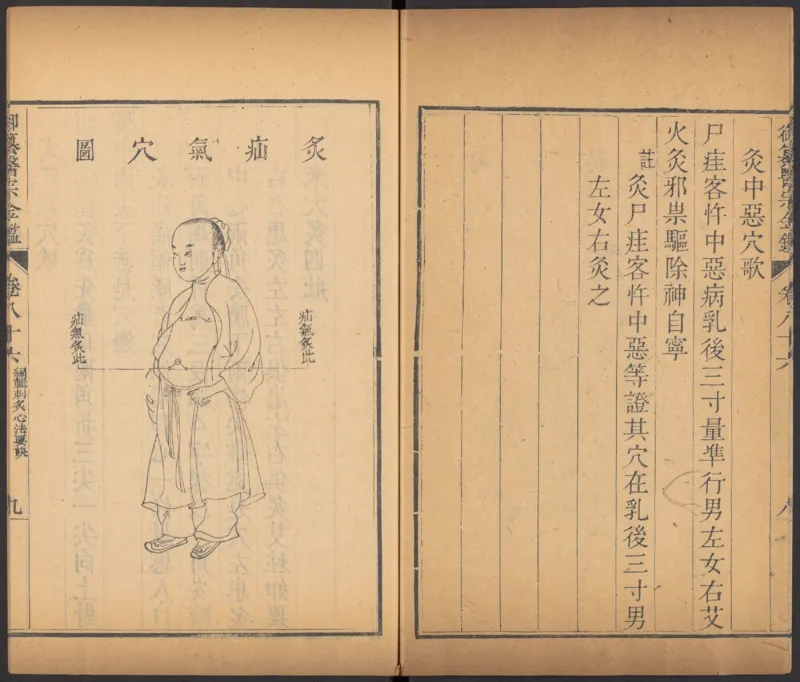 御纂醫宗金鑑 卷八十六 八
灸中惡穴歌
尸疰客忤中惡病乳後三寸量準行男左女右艾
火灸邪祟驅除神自寧
註灸尸疰客忤中惡等證其穴在乳後三寸男
左女右灸之
灸疝氣穴圖
疝氣灸此
疝氣灸此
御纂醫宗金鑑 卷八十六 編輯刺灸心法要訣 九